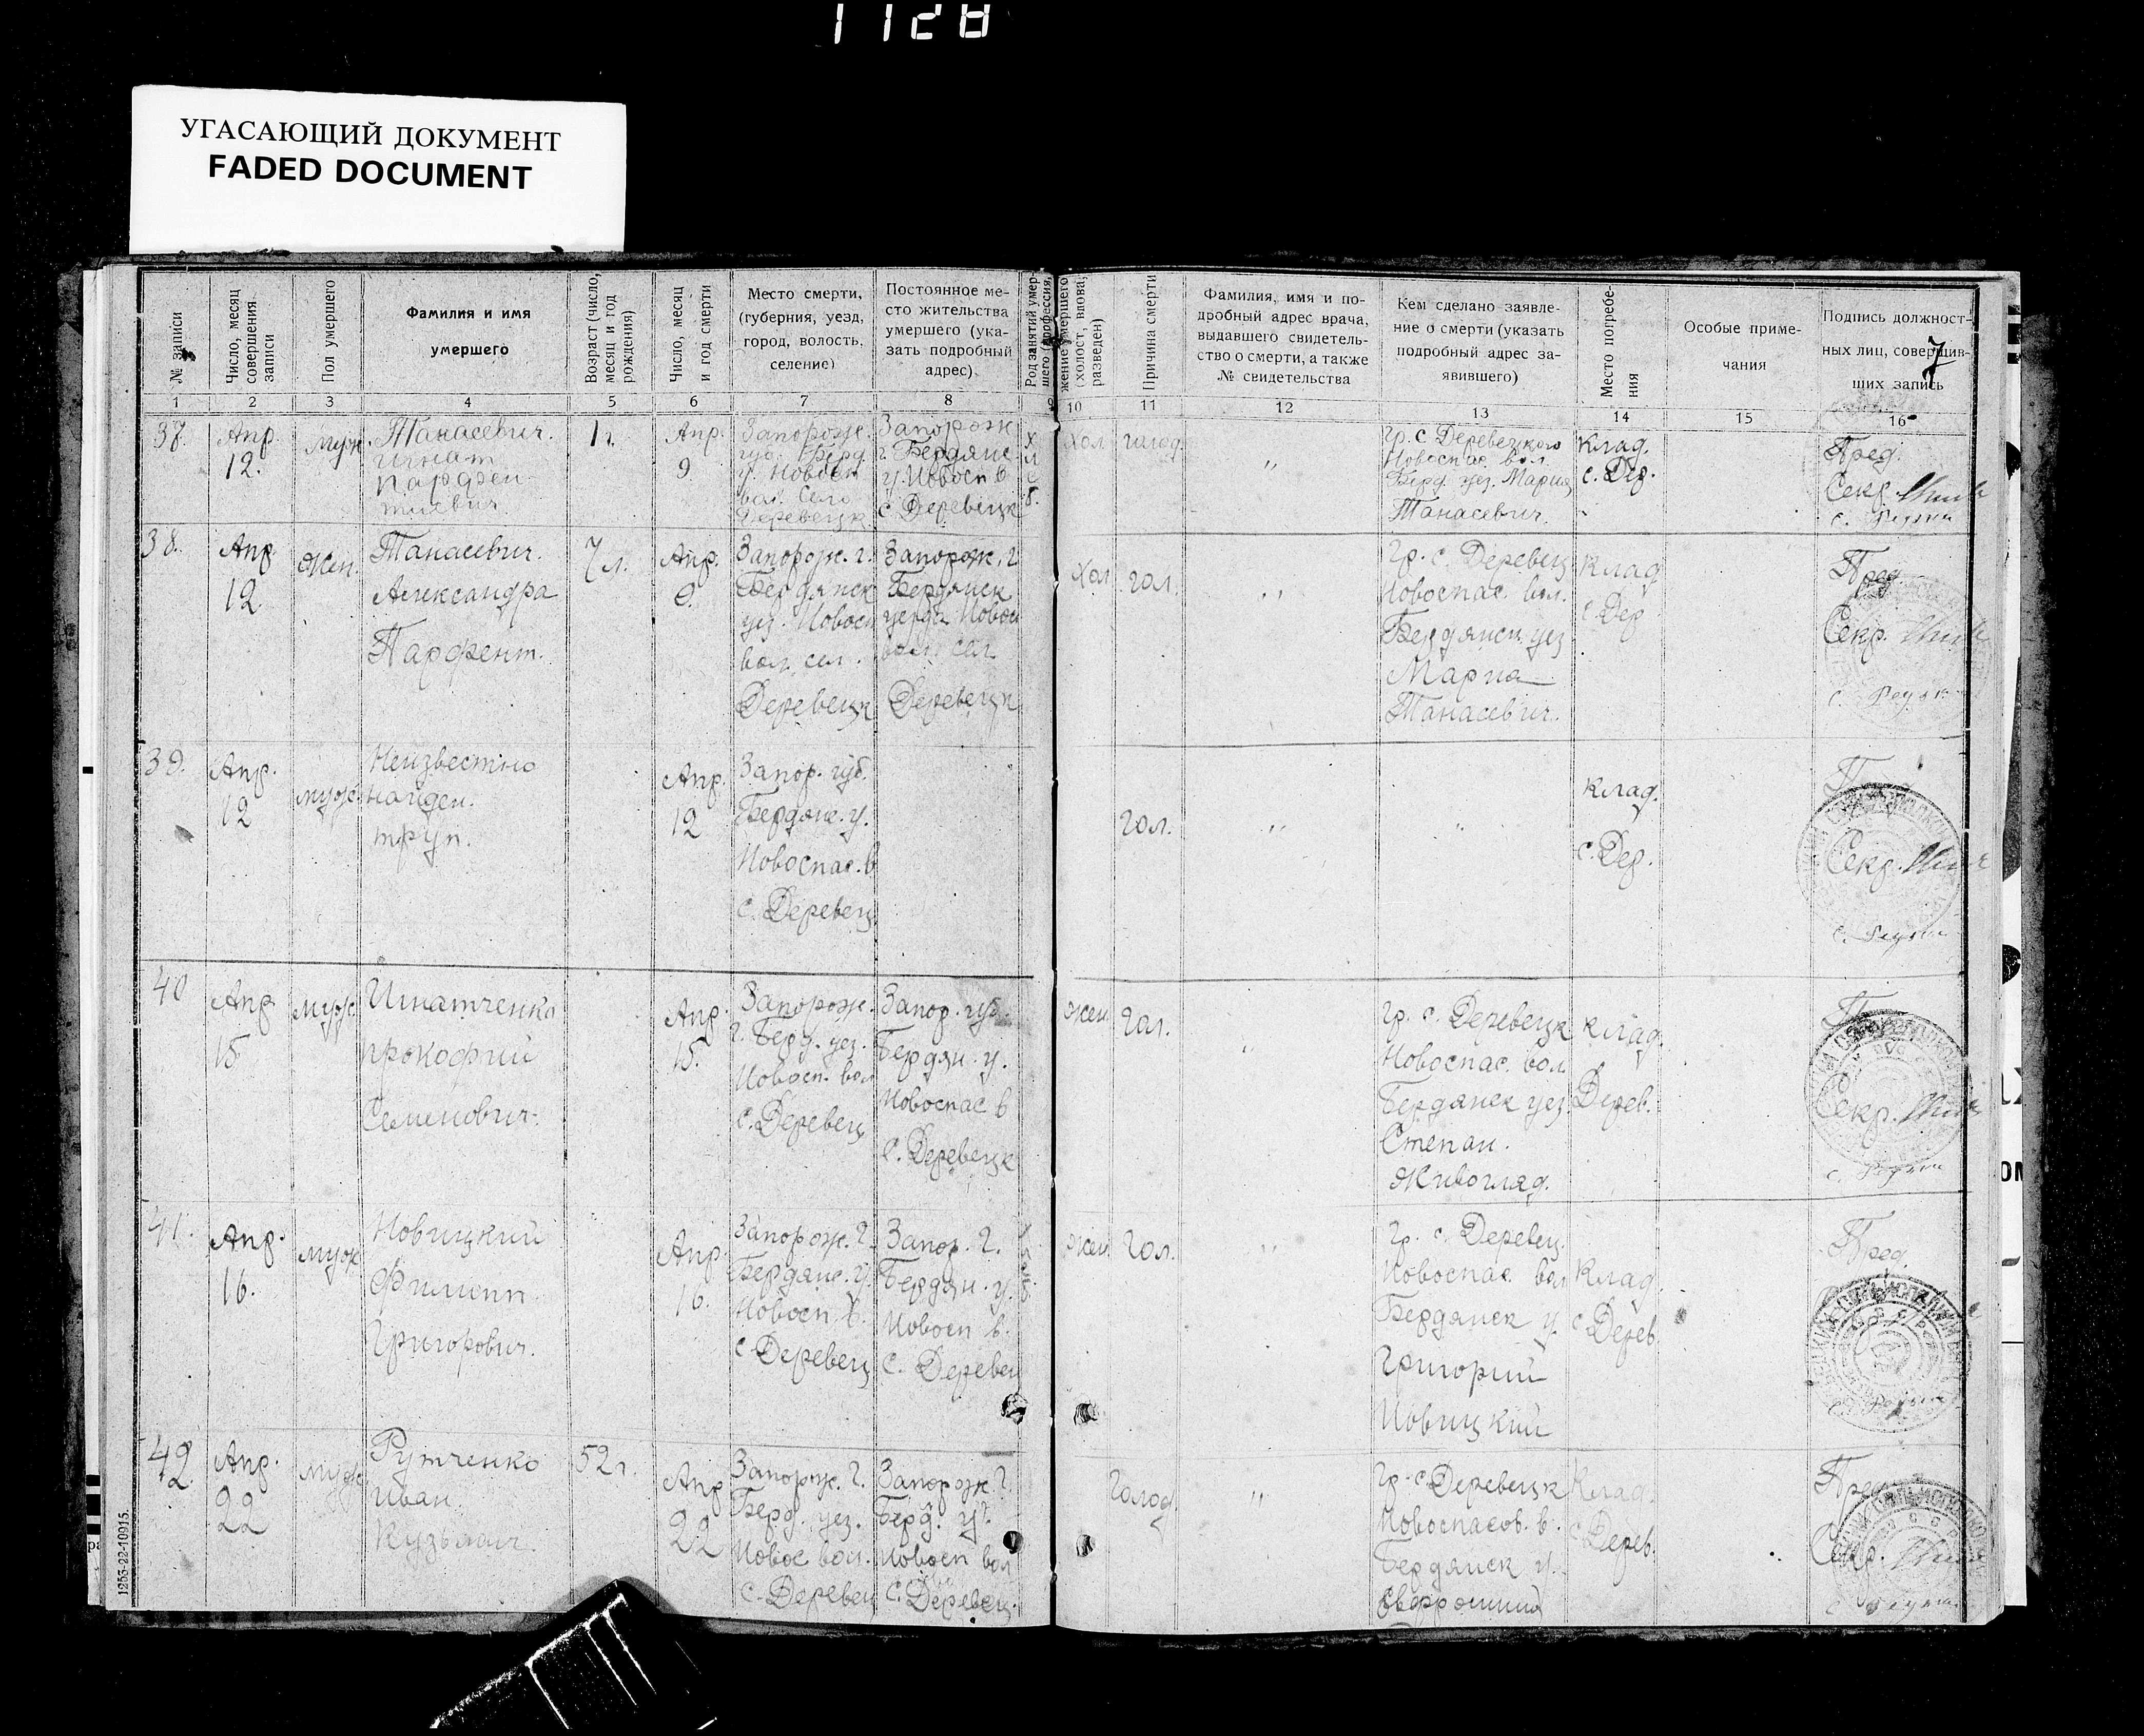 1128
УГАСАЮЩИЙ ДОКУМЕНТ
FADED DOCUMENT
№ записи
Число, месяц
совершения
записи
Пол умершего
Фамилия и имя
умершего
Возраст (число,
месяц и год
рождения)
Число, месяц
и год смерти
Место смерти,
(губерния, уезд,
город, волость,
селение)
Постоянное ме-
сто жительства
умершего (ука-
зать подробный
адрес)
Род занятий умер-
шего (профессия,
жение умершего
(холост, вдова,
разведен)
Причина смерти
Фамилия, имя и по-
дробный адрес врача,
выдавшего свидетель-
ство о смерти, а также
№ свидетельства
Кем сделано заявле-
ние о смерти (указать
подробный адрес за-
явившего)
Место погребе-
ния
Особые приме-
чания
Подпись должност-
ных лиц, совершив-
ших запись
7
1 2 3 4 5 6 7 8 9 10 11 12 13 14 15 16
37.
Апр.
12.
Муж
Танасевич.
Игнат
Парфен-
тиевич.
1 г.
Апр.
9.
Запорож.
губ. Берд
у. Новосп
вол. Село
Деревецк.
Запорож
г. Бердянс.
у. Новосп в
с. Деревецк
Хол.
голод.
"
Гр. с. Деревецкого
Новоспас. вол.
Берд. уез. Мария
Танасевич.
Клад.
с. Дер.
Пред.
Секр.
38.
Апр
12
Жен.
Танасевич.
Александра
Парфент.
7 л.
Апр.
9.
Запорож. г.
Бердянск
уез. Новосп
вол. сел.
Деревецк
Запорож. г
Бердянск
уезда Новосп
вол. сел
Деревецк
Хол
гол.
"
Гр. с. Деревец
Новоспас. вол.
Бердянск. уез
Мария
Танасевич.
Клад
с. Дер
Пред.
Секр.
39.
Апр.
12
муж.
Неизвестно
найден.
труп.
Апр.
12
Запор. губ.
Бердянс. у.
Новоспас. в
с. Деревец.
гол.
"
"
Клад.
с. Дер.
Секр.
40
Апр
15
муж.
Игнатченко
Прокофий
Семенович.
Апр.
15.
Запорож.
г. Берд. уез.
Новосп. вол
с. Деревец
Запор. губ.
Бердян. у.
Новоспас в
с. Деревецк
жен.
гол.
"
Гр. с. Деревецк
Новоспас. вол.
Бердянск уез.
Степан.
Живогляд.
Клад.
Дерев.
Секр.
41.
Апр.
16.
муж
Новицкий
Филипп
Григорович.
Апр.
16.
Запорож. г.
Бердянс. у.
Новосп в.
с Деревец
Запор. г.
Бердян. у.
Новосп в.
с. Деревец
жен.
гол.
"
Гр. с. Деревец.
Новоспас. вол
Бердянск у.
Григорий
Новицкий
Клад.
с. Дерев.
Пред.
42.
Апр.
22
муж
Рутченко
Иван.
Кузьмич.
52 г.
Апр
22
Запорож. г.
Берд. уез.
Новос вол.
с. Деревец
Запорож г.
Берд. у.
Новосп вол
с. Деревец.
Голод
"
Гр. с. Деревецк
Новоспасов. в.
Бердянск у.
Клад.
с. Дерев.
Пред
Секр.
1255-22-10915.